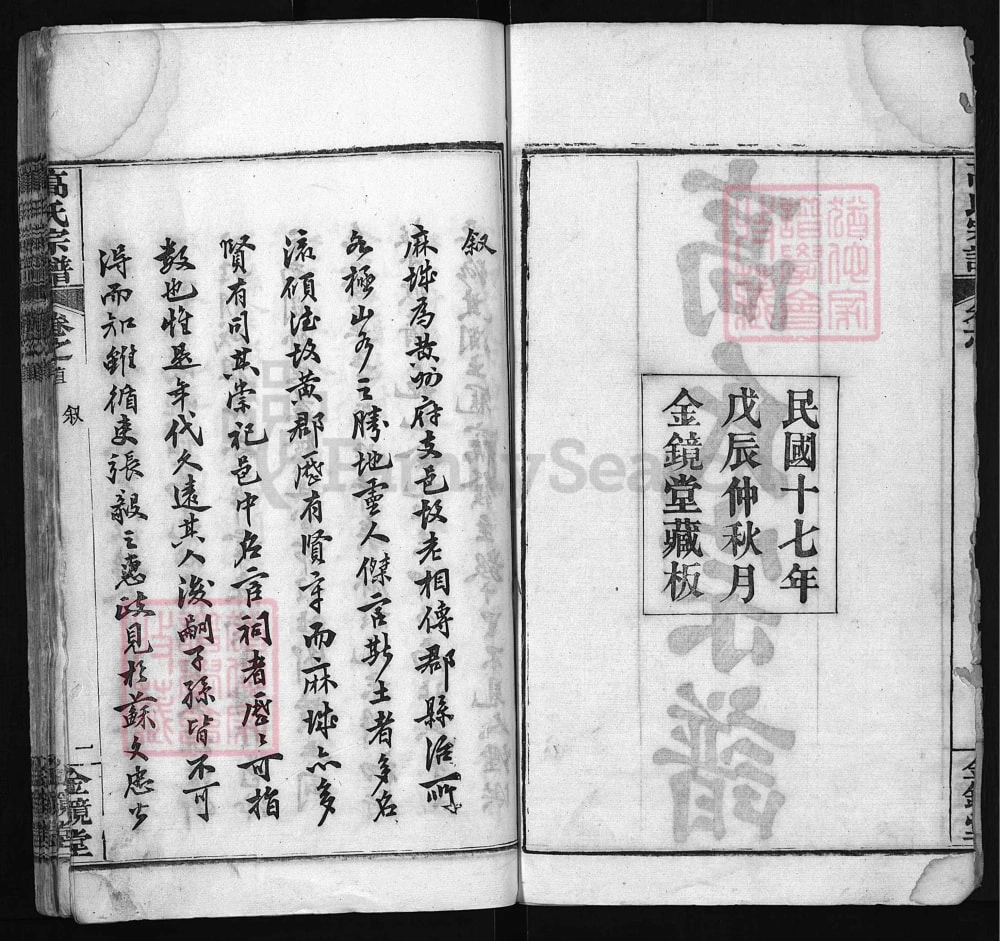 民國十七年
戊辰仲秋月
金鏡堂藏板
高氏宗譜
叙
麻城為黃州府支邑故老相傳郡縣治所
名極山多之勝地靈人傑官斯土者多名
流碩望故黃郡歷有賢守而麻城亦多
賢有司其崇祀邑中名宦祠者歷歷可指
數也惟是年代久遠其人後嗣子孫皆不可
得而知雖循吏張毅之惠政見於蘇文忠公
高氏宗譜
卷之首
叙
一
金鏡堂